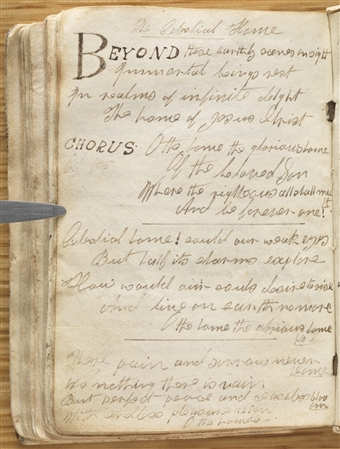 The Celestial Home
BEYOND these earthly scenes in sight
Immortal beings rest
In realms of infinite delight
The home of Jesus Christ
CHORUS: O the home the glorious home
Of the beloved Son
Where the righteous all shall meet
And be forever one!
Celestial home! could our weak eyes
But half its charms explore
How would our souls desire to rise
And live on earth no more
O the home the glorious home
&c
There pain and sorrow never come
nothing there is vain
But perfect peace and
With endless pleasure reign
O the home &c